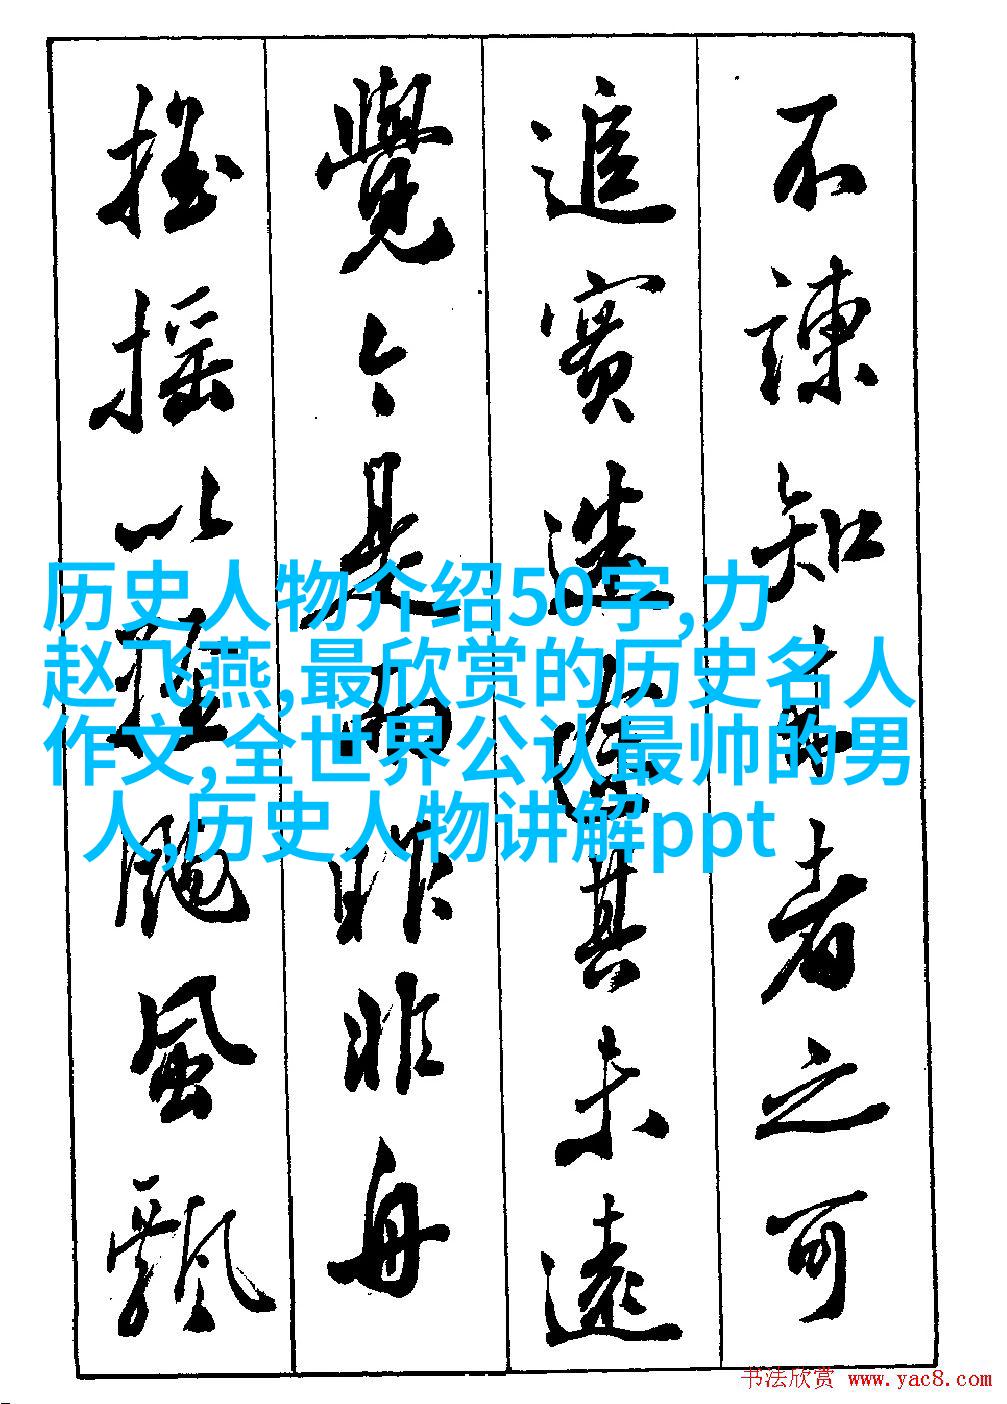 不諫知来者之可
追實迷途其未遠
覺今是而昨非舟
摇摇以輕颺風飄
历史人物介绍50字,力
赵飞燕,最欣赏的历史名人
作文,全世界公认最帅的男
人,历史人物讲解ppt
书法欣赏 www.yac8.com